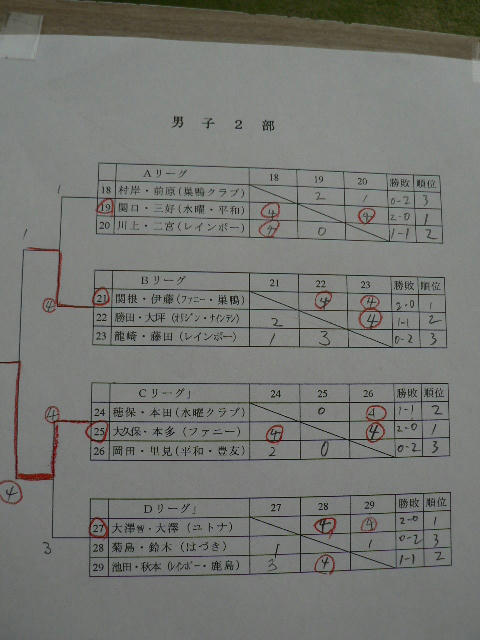 男子2部
Aリーグ 18 19 20 勝敗 順位
18 村岸・前原(巣鴨クラブ) 2 1 0-2 3
19 関口・三好(水曜・平和) ④ ④ 2-0 1
20 川上・二宮(レインボー) ④ 0 1-1 2
1
1
Bリーグ 21 22 23 勝敗 順位
21 関根・伊藤(ファニー・巣鴨) ④ ④ 2-0 1
22 勝田・大坪(オリジン・ナインテン) 2 ④ 1-1 2
23 龍崎・藤田(レインボー) 1 3 0-2 3
④
Cリーグ」 24 25 26 勝敗 順位
24 穂保・本田(水曜クラブ) 0 ④ 1-1 2
25 大久保・本多(ファニー) ④ ④ 2-0 1
26 岡田・里見(平和・豊友) 2 0 0-2 3
④
④
Dリーグ」 27 28 29 勝敗 順位
27 大澤智・大澤(ユトナ) ④ ④ 2-0 1
28 菊島・鈴木(はづき) 1 1 0-2 3
29 池田・秋本(レインボー・鹿島) 3 ④ 1-1 2
3